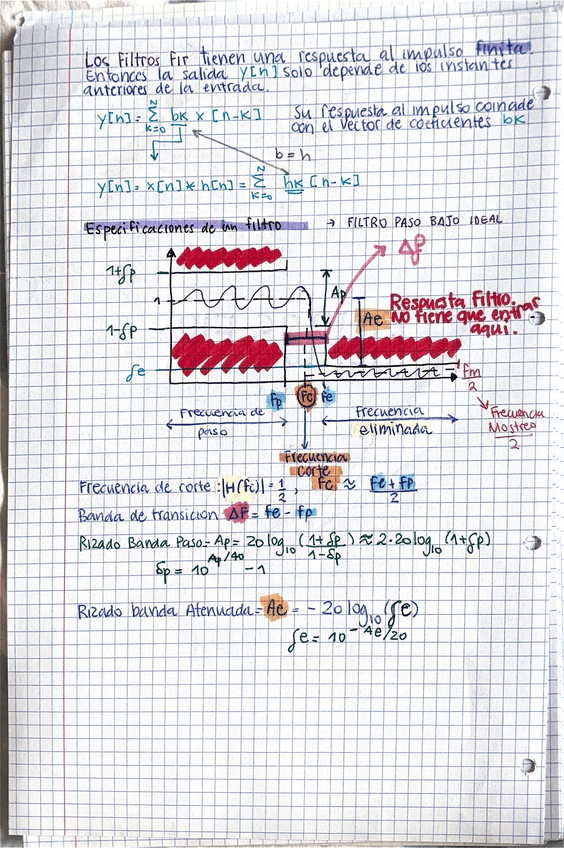 Los Filtros Fir tienen una respuesta al impulso finita.
Entonces la salida y[n] solo depende de los instantes
anteriores de la entrada.
y[n] = Σ bk x [n-k]
k=0
Su respuesta al impulso coincide
con el vector de coeficientes bk
b = h
y[n] = x[n] * h[n] = Σ hk [n-k]
k=0
Especificaciones de un filtro → FILTRO PASO BAJO IDEAL
Δf
1+δp
Ap
1
Ae
Respuesta Filtro.
NO tiene que entrar
aqui.
1-δp
δe
fm
2
Fp Fc Fe
Frecuencia de
paso
Frecuencia
eliminada
Frecuencia
Mostreo
2
Frecuencia
corte
Frecuencia de corte: |H(fc)| = 1/2, Fc ≈ (fe + fp)/2
Banda de transición Δf = fe - fp
Rizado Banda Paso = Ap = 20 log10 (1+δp / 1-δp) ≈ 2·20 log10 (1+δp)
δp = 10^(Ap/40) - 1
Rizado banda Atenuada = Ae = - 20 log10 (δe)
δe = 10^(-Ae/20)